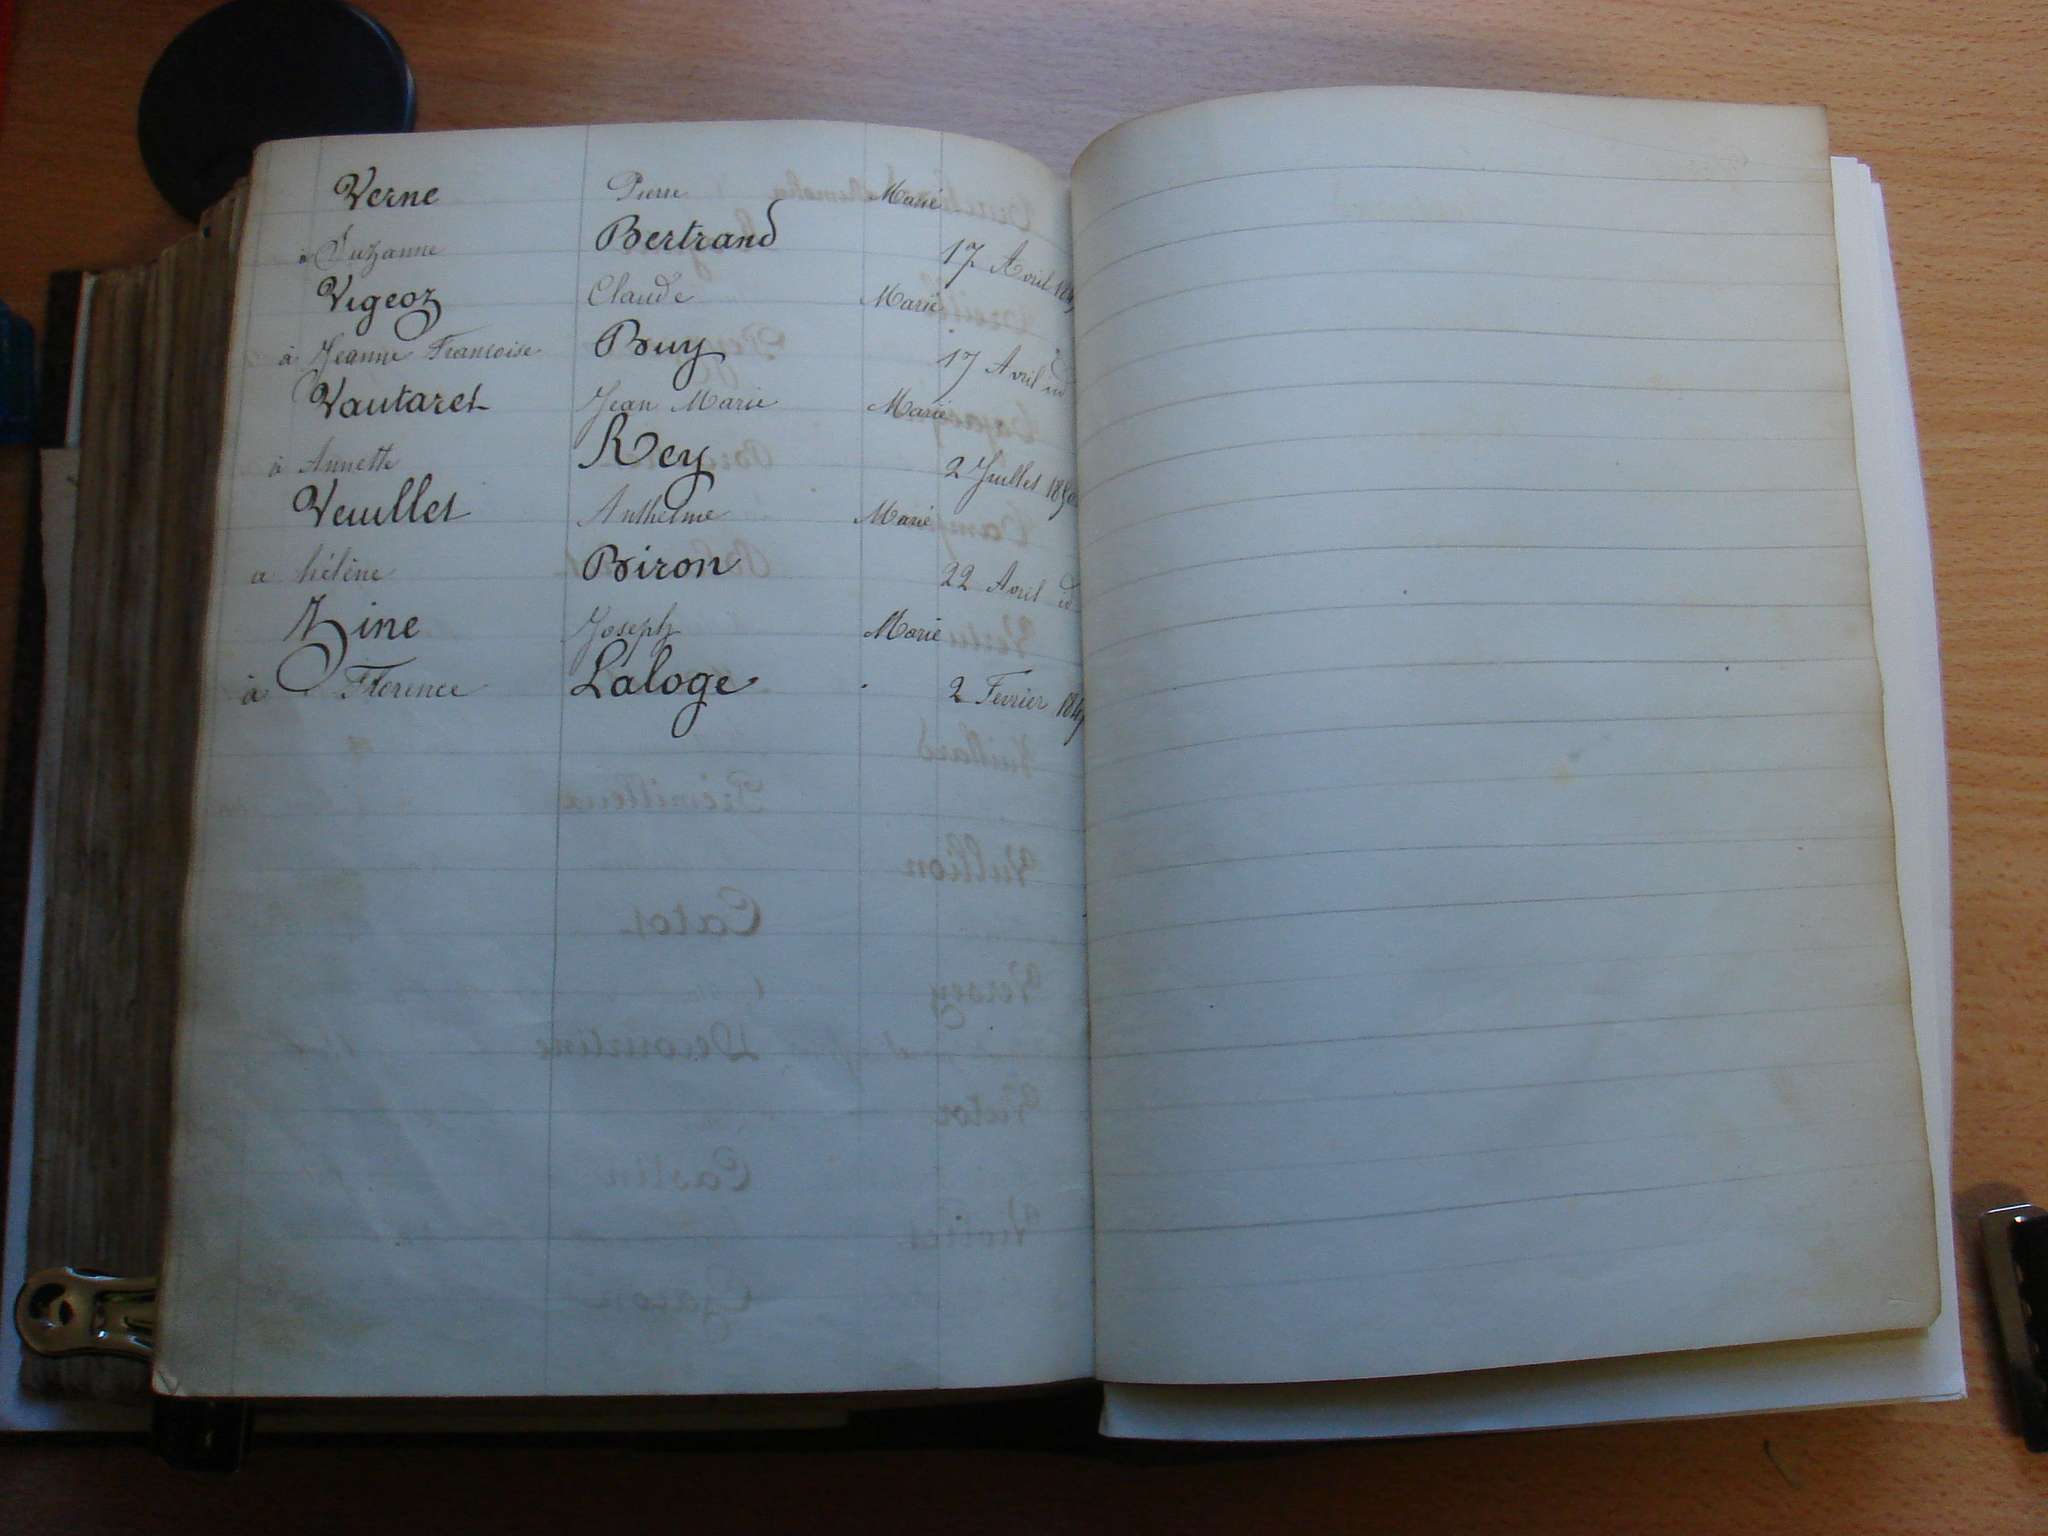 Verne Pierre Marié
à Suzanne Bertrand 17 Avril
Vigeoz Claude Marié
à Jeanne Francoise Buy 17 Avril id
Vautaret Jean Marie Marié
à Annette Rey 2 Juillet
Veuillet Anthelme Marié
a hélène Biron 22 Avril id
Zine Joseph Marié
à Florence Laloge 2 Fevrier